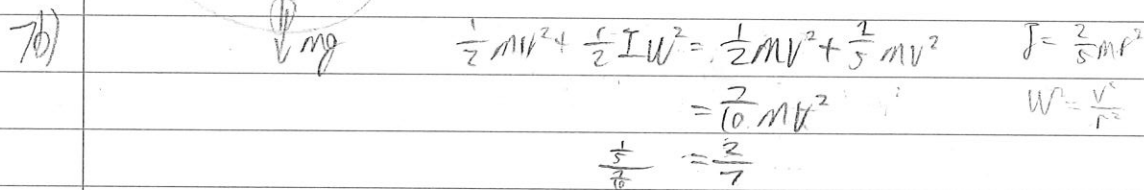 7b) ↓ mg ½ mv² + ½ Iω² = ½ mv² + ⅕ mv² I = ⅖ mr²
= 7/10 mv² ω² = v²/r²
(1/5)/(7/10) = 2/7